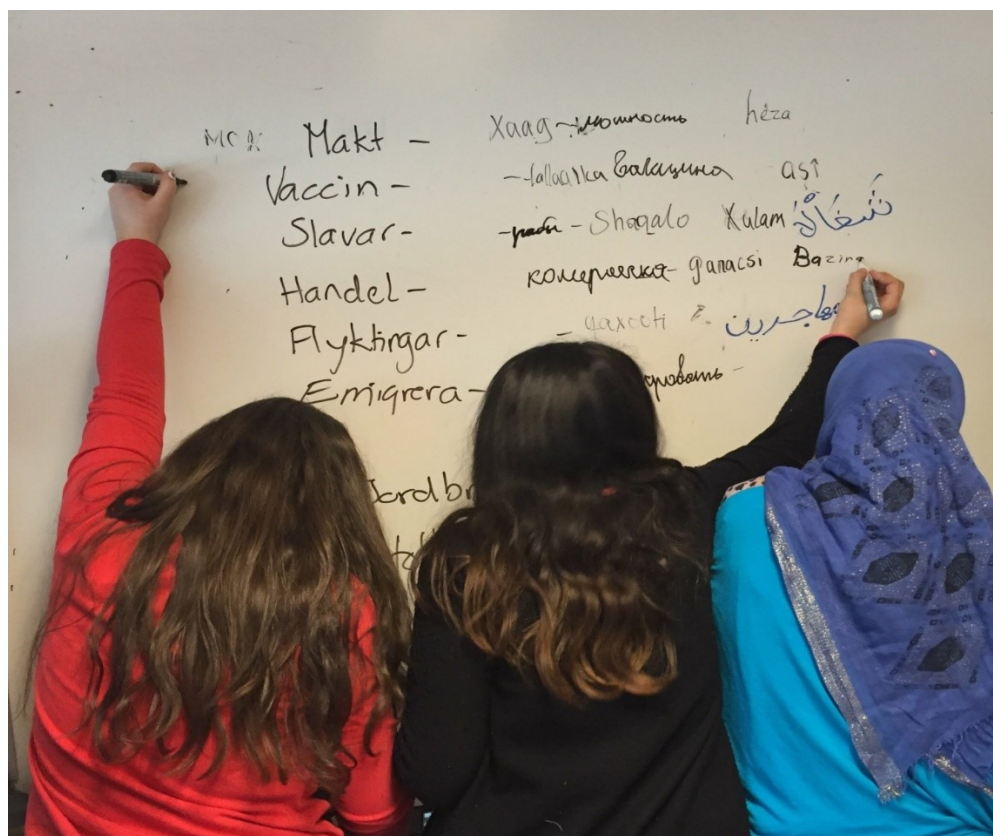 Makt - Xaag - мотность hêza
Vaccin - - tallaalka Вакцина aşî
Slavar - - рабы - Shaqalo Xulam شغالة
Handel - комерческа - ganacsi Bazirg
Flyktingar - - qaxooti مهاجرين
Emigrera -
Jordbr